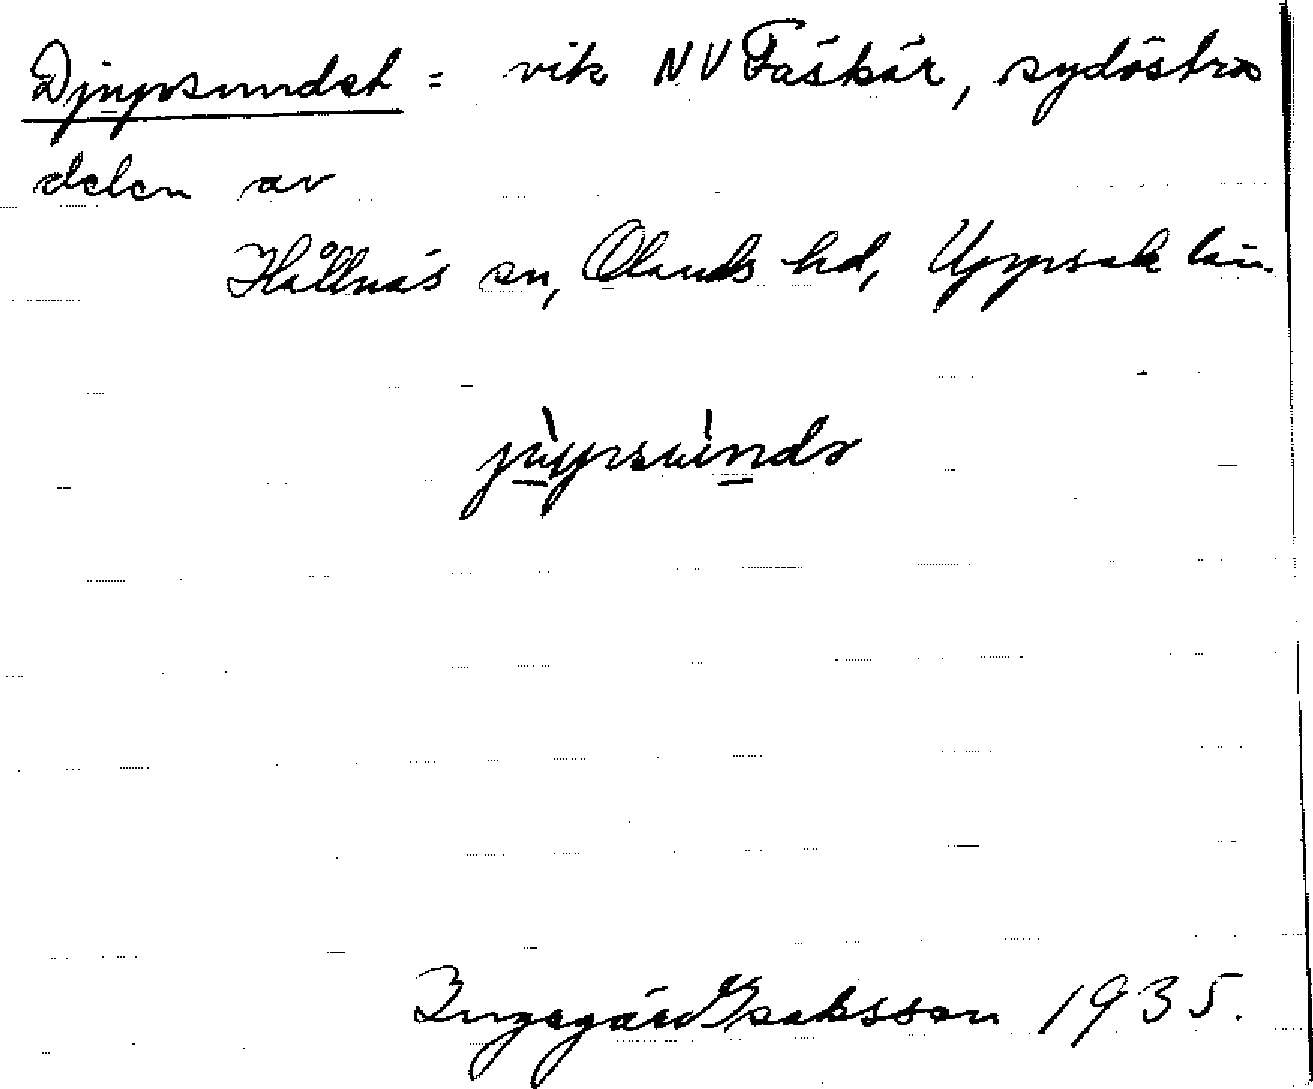 Djupsundet = vik NV Fåskär, sydöstra
delen av
Hållnäs sn, Olands hd, Uppsala län.
jùpsùnda
Ingegärd Isaksson 1935.